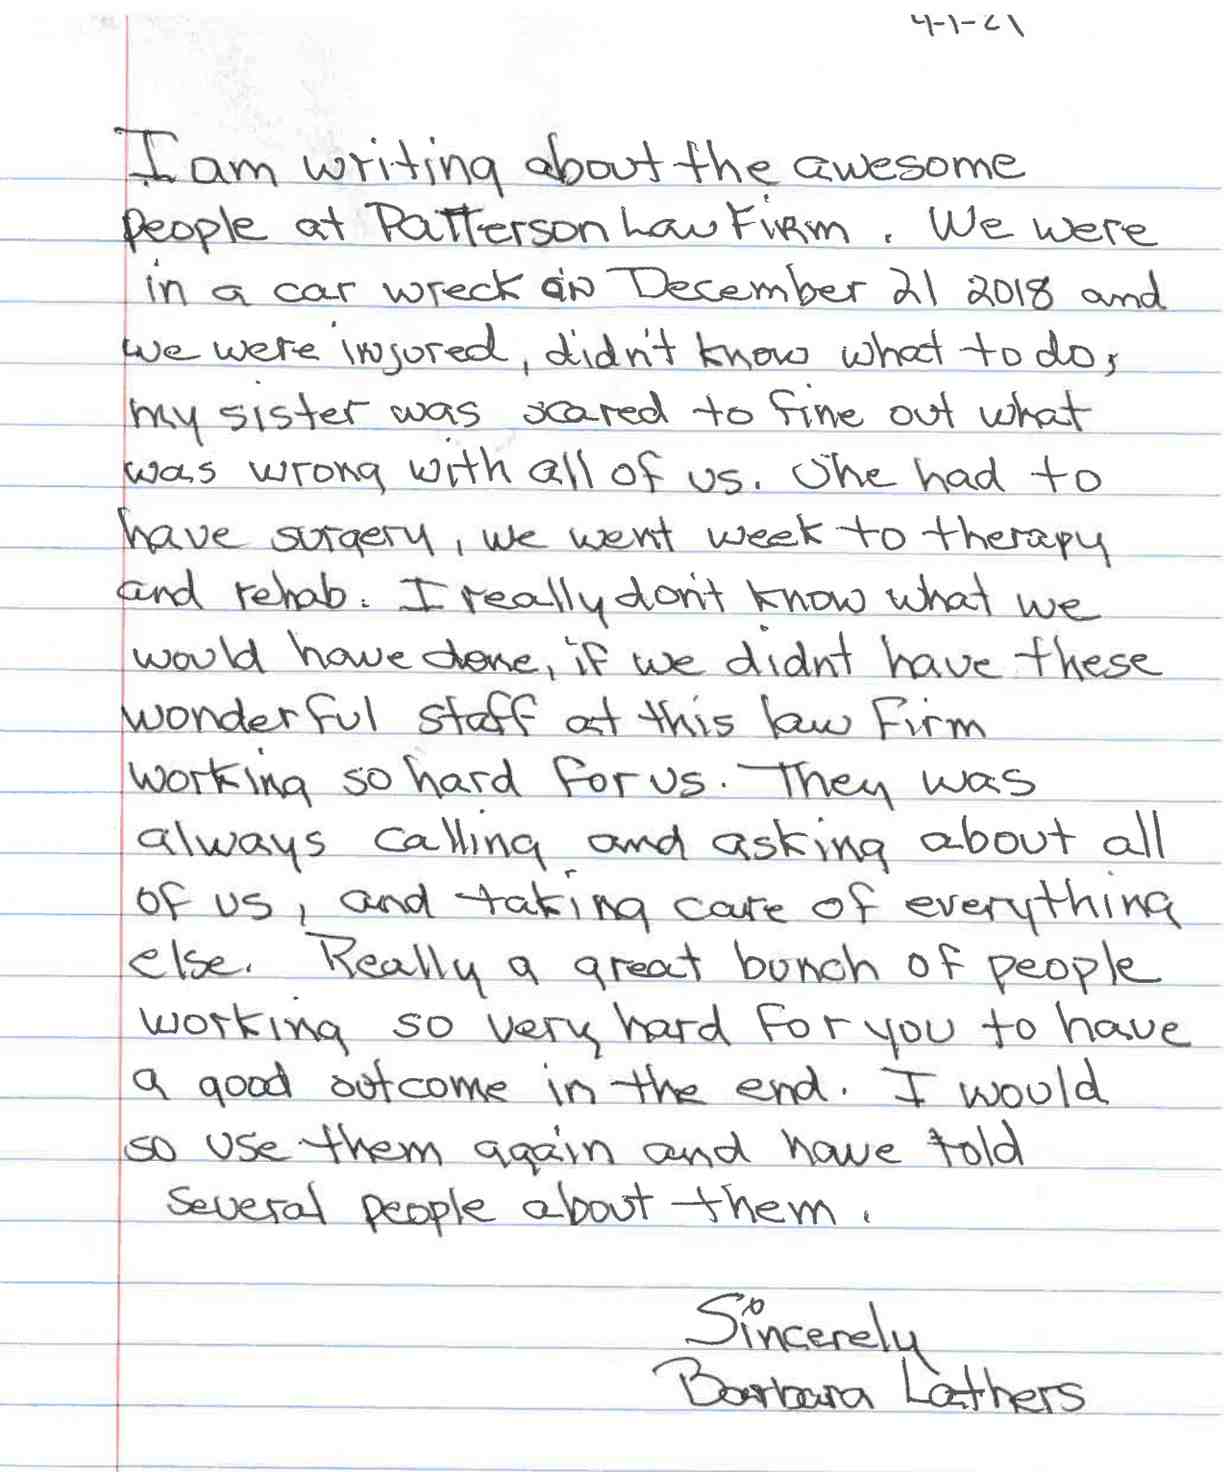 4-1-21
I am writing about the awesome
people at Patterson Law Firm. We were
in a car wreck in December 21 2018 and
we were injured, didn't know what to do,
my sister was scared to fine out what
was wrong with all of us. She had to
have surgery, we went week to therapy
and rehab. I really don't know what we
would have done, if we didnt have these
wonderful staff at this law firm
working so hard for us. They was
always calling and asking about all
of us, and taking care of everything
else. Really a great bunch of people
working so very hard for you to have
a good outcome in the end. I would
so use them again and have told
several people about them.
Sincerely
Barbara Lathers